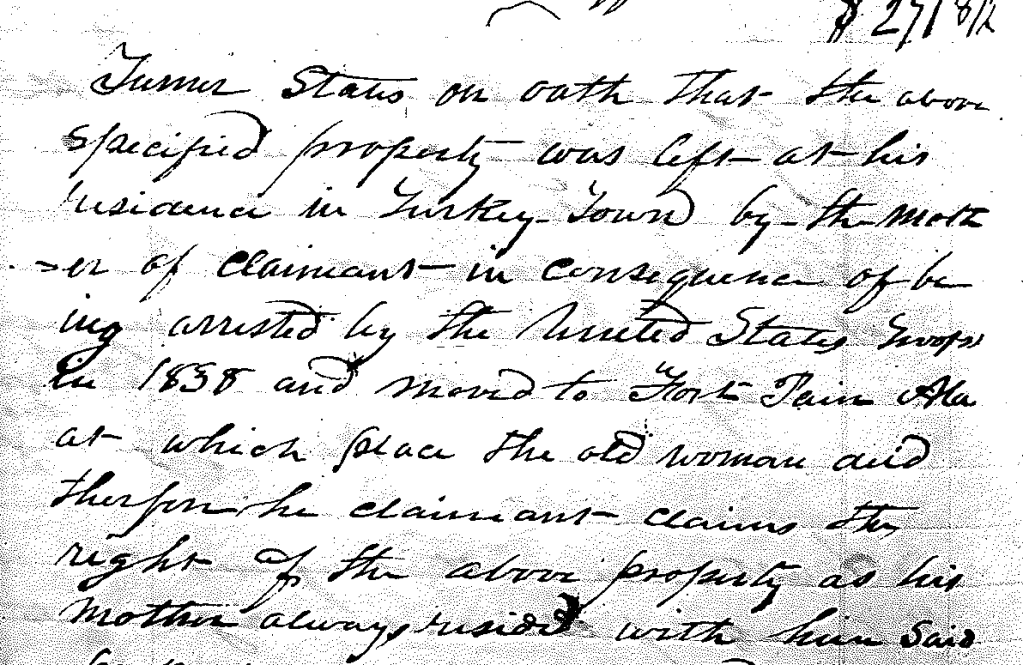 $ 271 81/2
Turner States on oath that the above
specified property was left at his
residence in Turkey Town by the moth
=er of claimant in consequence of be
ing arrested by the United States Troops
in 1838 and moved to Fort Pain Ala
at which place the old woman died
therfore he claimant claims the
right of the above property as his
mother always resided with him Said